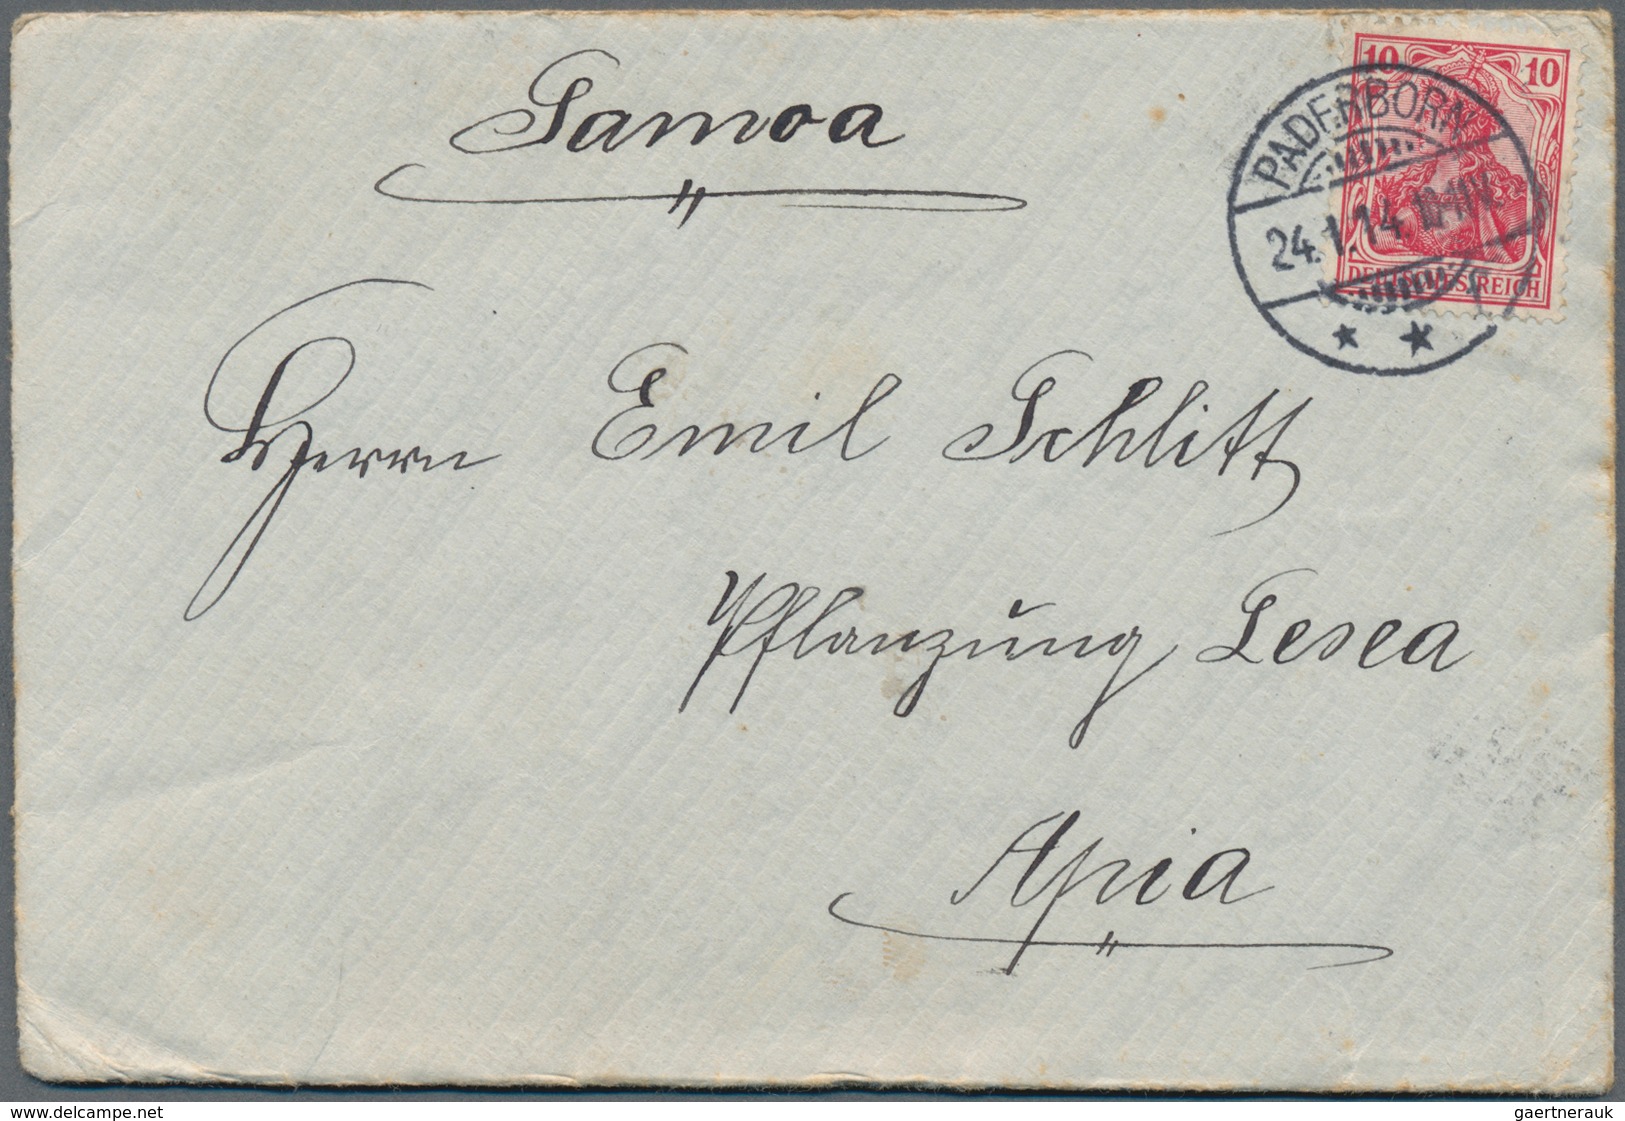 Samoa
10 10
DEUTSCHES REICH
PADERBORN
24.1.14. 10-11V.
Herrn Emil Schlitt
Pflanzung Lesea
Apia
www.delcampe.net
gaertnerauk